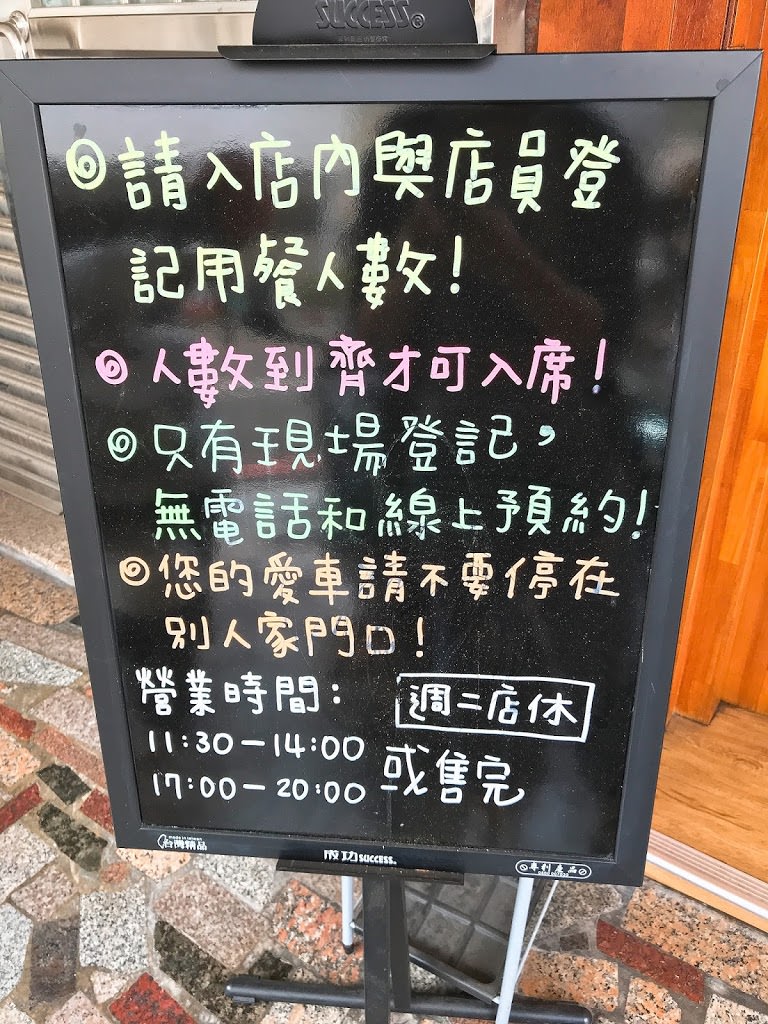 SUCCESS®
◎請入店內與店員登
記用餐人數!
◎人數到齊才可入席!
◎只有現場登記,
無電話和線上預約!
◎您的愛車請不要停在
別人家門口!
營業時間:
週二店休
11:30-14:00
17:00-20:00
或售完
made in taiwan
台灣精品
成功SUCCESS®
專利產品